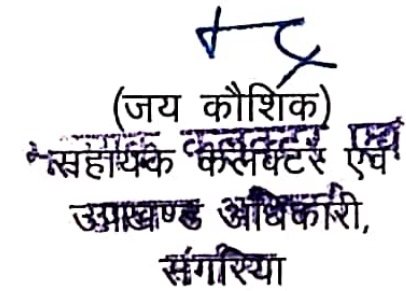 (जय कौशिक)
सहायक कलेक्टर एवं
उपखण्ड अधिकारी,
संगरिया